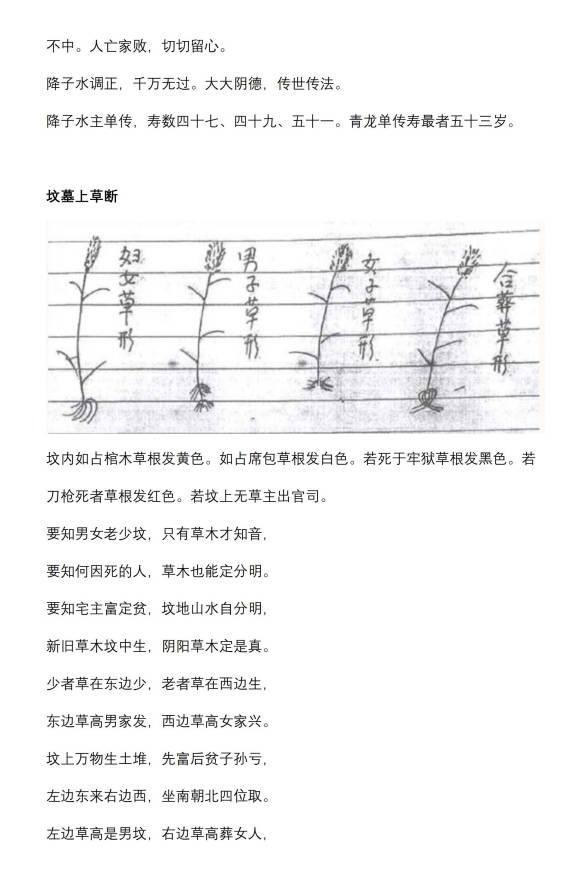 不中。人亡家败，切切留心。
降子水调正，千万无过。大大阴德，传世传法。
降子水主单传，寿数四十七、四十九、五十一。青龙单传寿最者五十三岁。
坟墓上草断
妇女草形
男子草形
女子草形
合葬草形
坟内如占棺木草根发黄色。如占席包草根发白色。若死于牢狱草根发黑色。若
刀枪死者草根发红色。若坟上无草主出官司。
要知男女老少坟，只有草木才知音，
要知何因死的人，草木也能定分明。
要知宅主富定贫，坟地山水自分明，
新旧草木坟中生，阴阳草木定是真。
少者草在东边少，老者草在西边生，
东边草高男家发，西边草高女家兴。
坟上万物生土堆，先富后贫子孙亏，
左边东来右边西，坐南朝北四位取。
左边草高是男坟，右边草高葬女人，